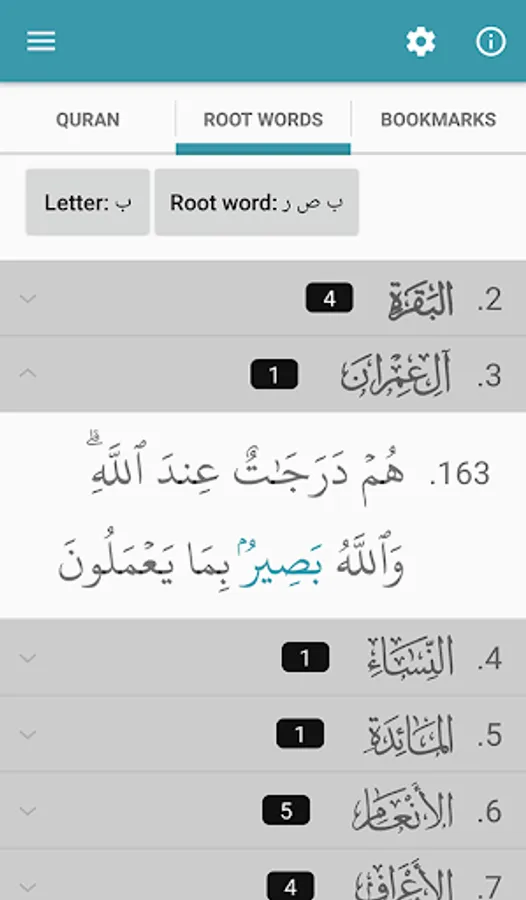 QURAN
ROOT WORDS
BOOKMARKS
Letter: ب
Root word: ب ص ر
2. البَقَرَةِ 4
3. آلِ عِمۡرَانَ 1
163. هُمۡ دَرَجَٰتٌ عِندَ ٱللَّهِۗ
وَٱللَّهُ بَصِيرُۢ بِمَا يَعۡمَلُونَ
4. النِّسَاءِ 1
5. المَائِدَةِ 1
6. الأَنۡعَامِ 5
7. الأَعۡرَافِ 4